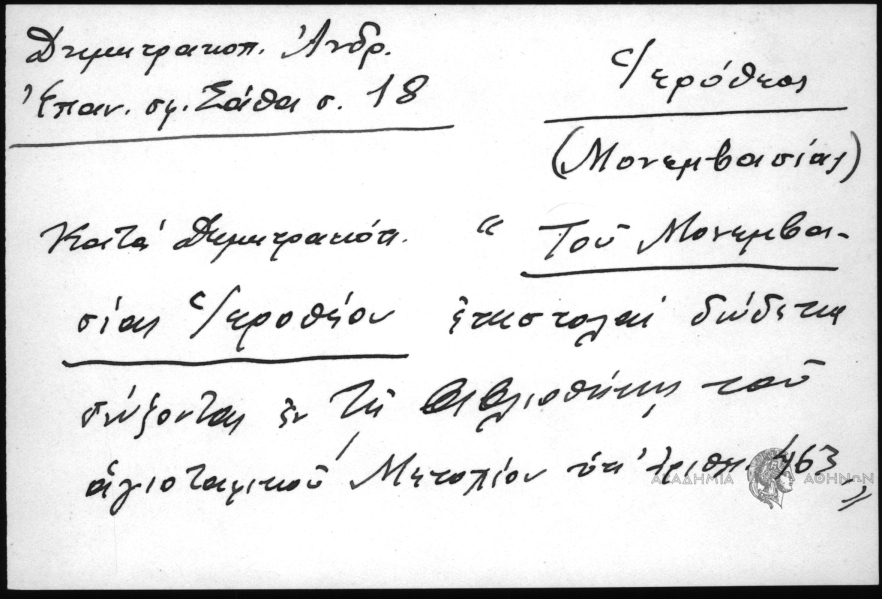 Δημητρακοπ. Ἀνδρ.
Ἐπαν. σφ. Σάθα σ. 18
Ἱερόθεος
(Μονεμβασίας)
Κατά Δημητρακόπ. “ Τοῦ Μονεμβα-
σίας Ἱεροθέου ἐπιστολαί δώδεκα
σώζονται ἐν τῇ βιβλιοθήκῃ τοῦ
ἁγιοταφικοῦ Μετοχίου ὑπ' ἀριθμ. 463 "
ΑΚΑΔΗΜΙΑ ΑΘΗΝΩΝ